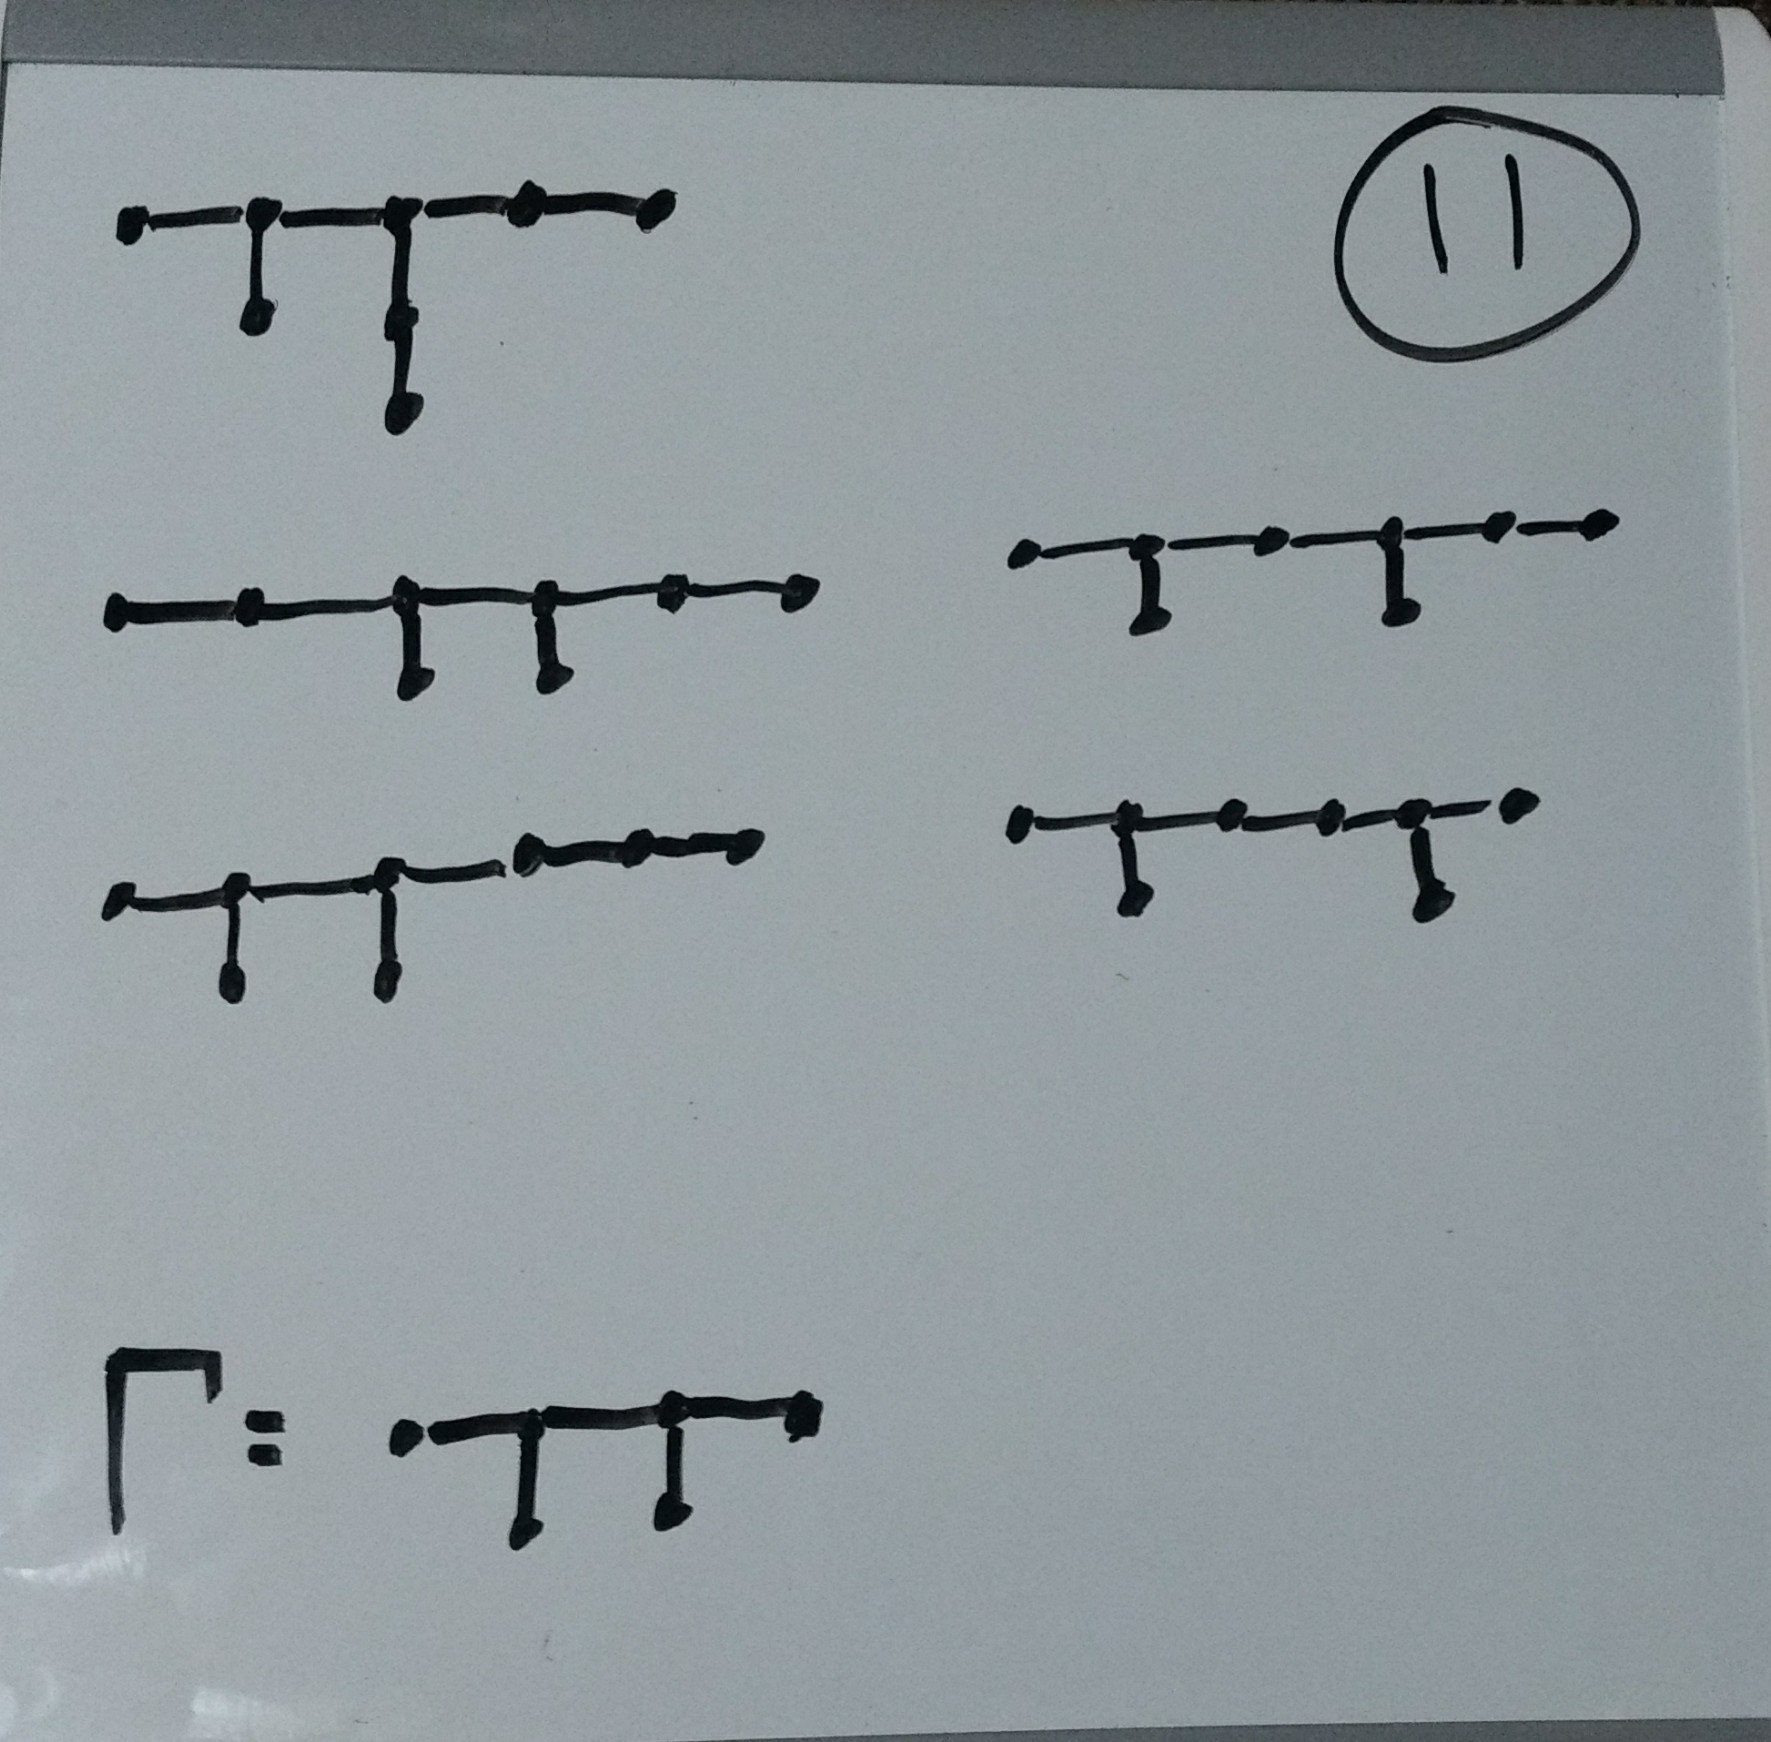 11
Γ =